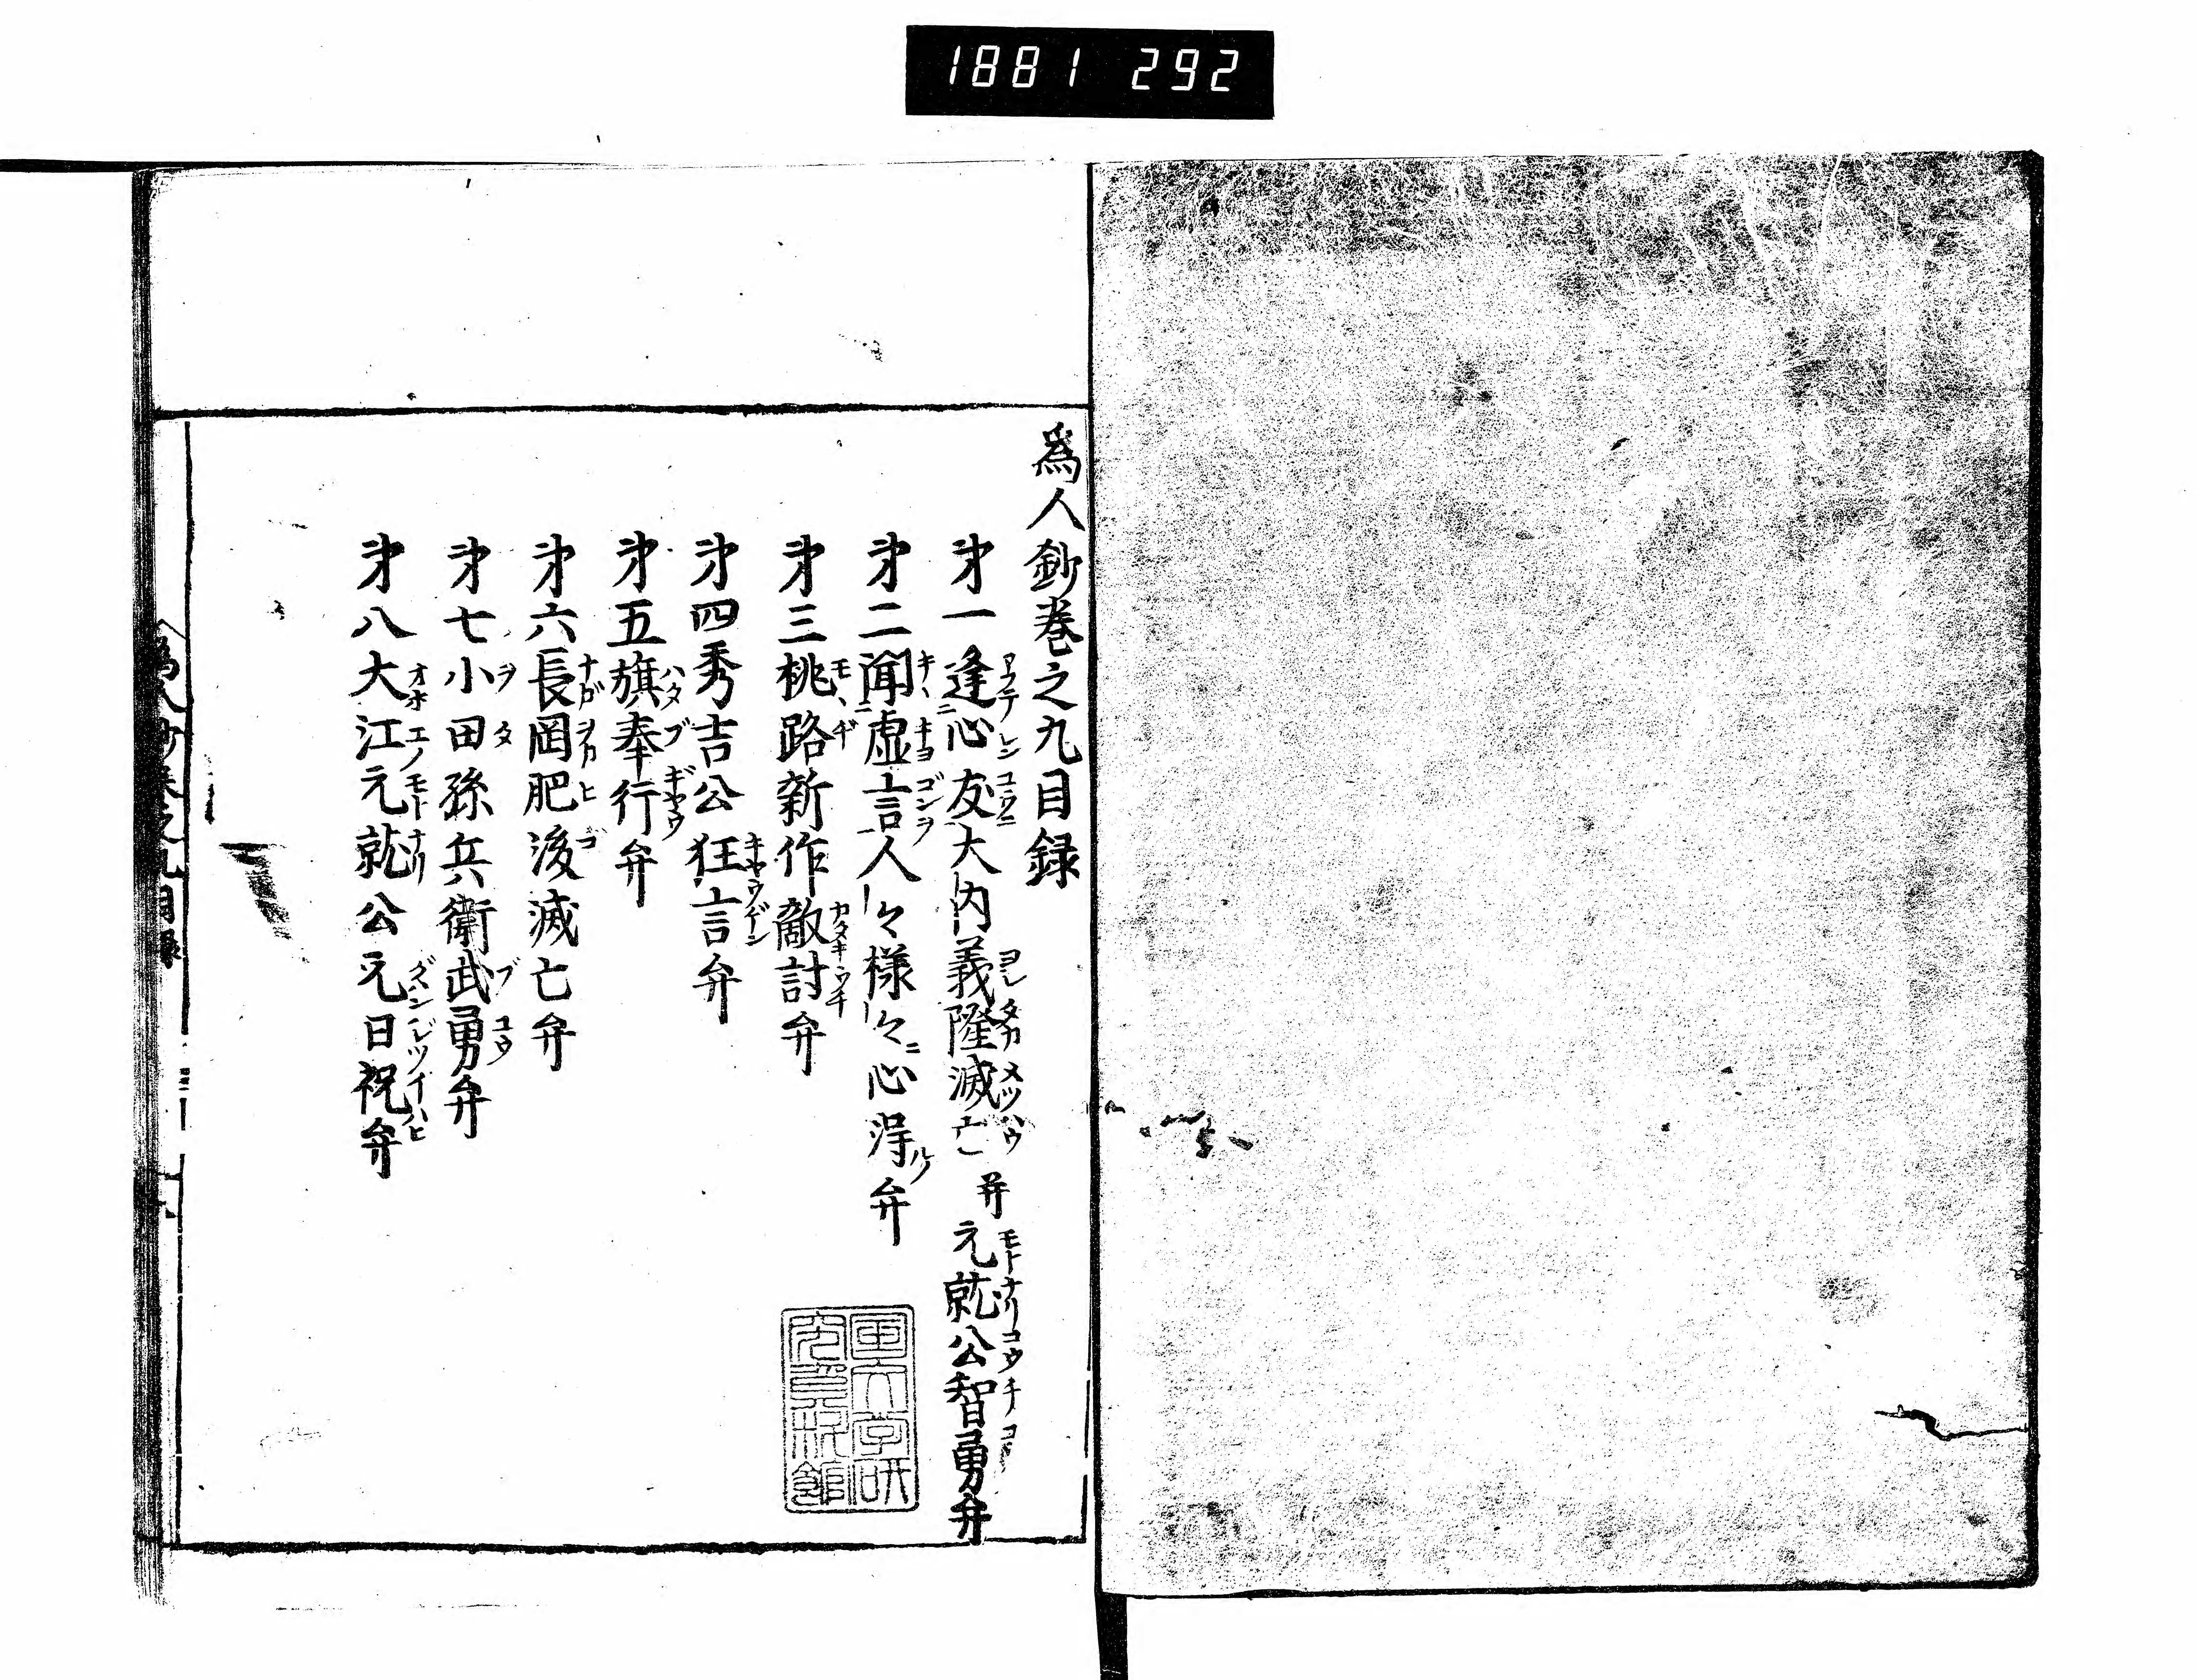 1881 292
爲人鈔巻之九目録
㐧一逢心友大内義隆滅亡 并 元就公智勇弁
㐧二聞虚言人々様々心淂弁
㐧三桃路新作敵討弁
㐧四秀吉公狂言弁
㐧五旗奉行弁
㐧六長岡肥後滅亡弁
㐧七小田孫兵衛武勇弁
㐧八大江元就公元日祝弁
爲人鈔巻之九目録